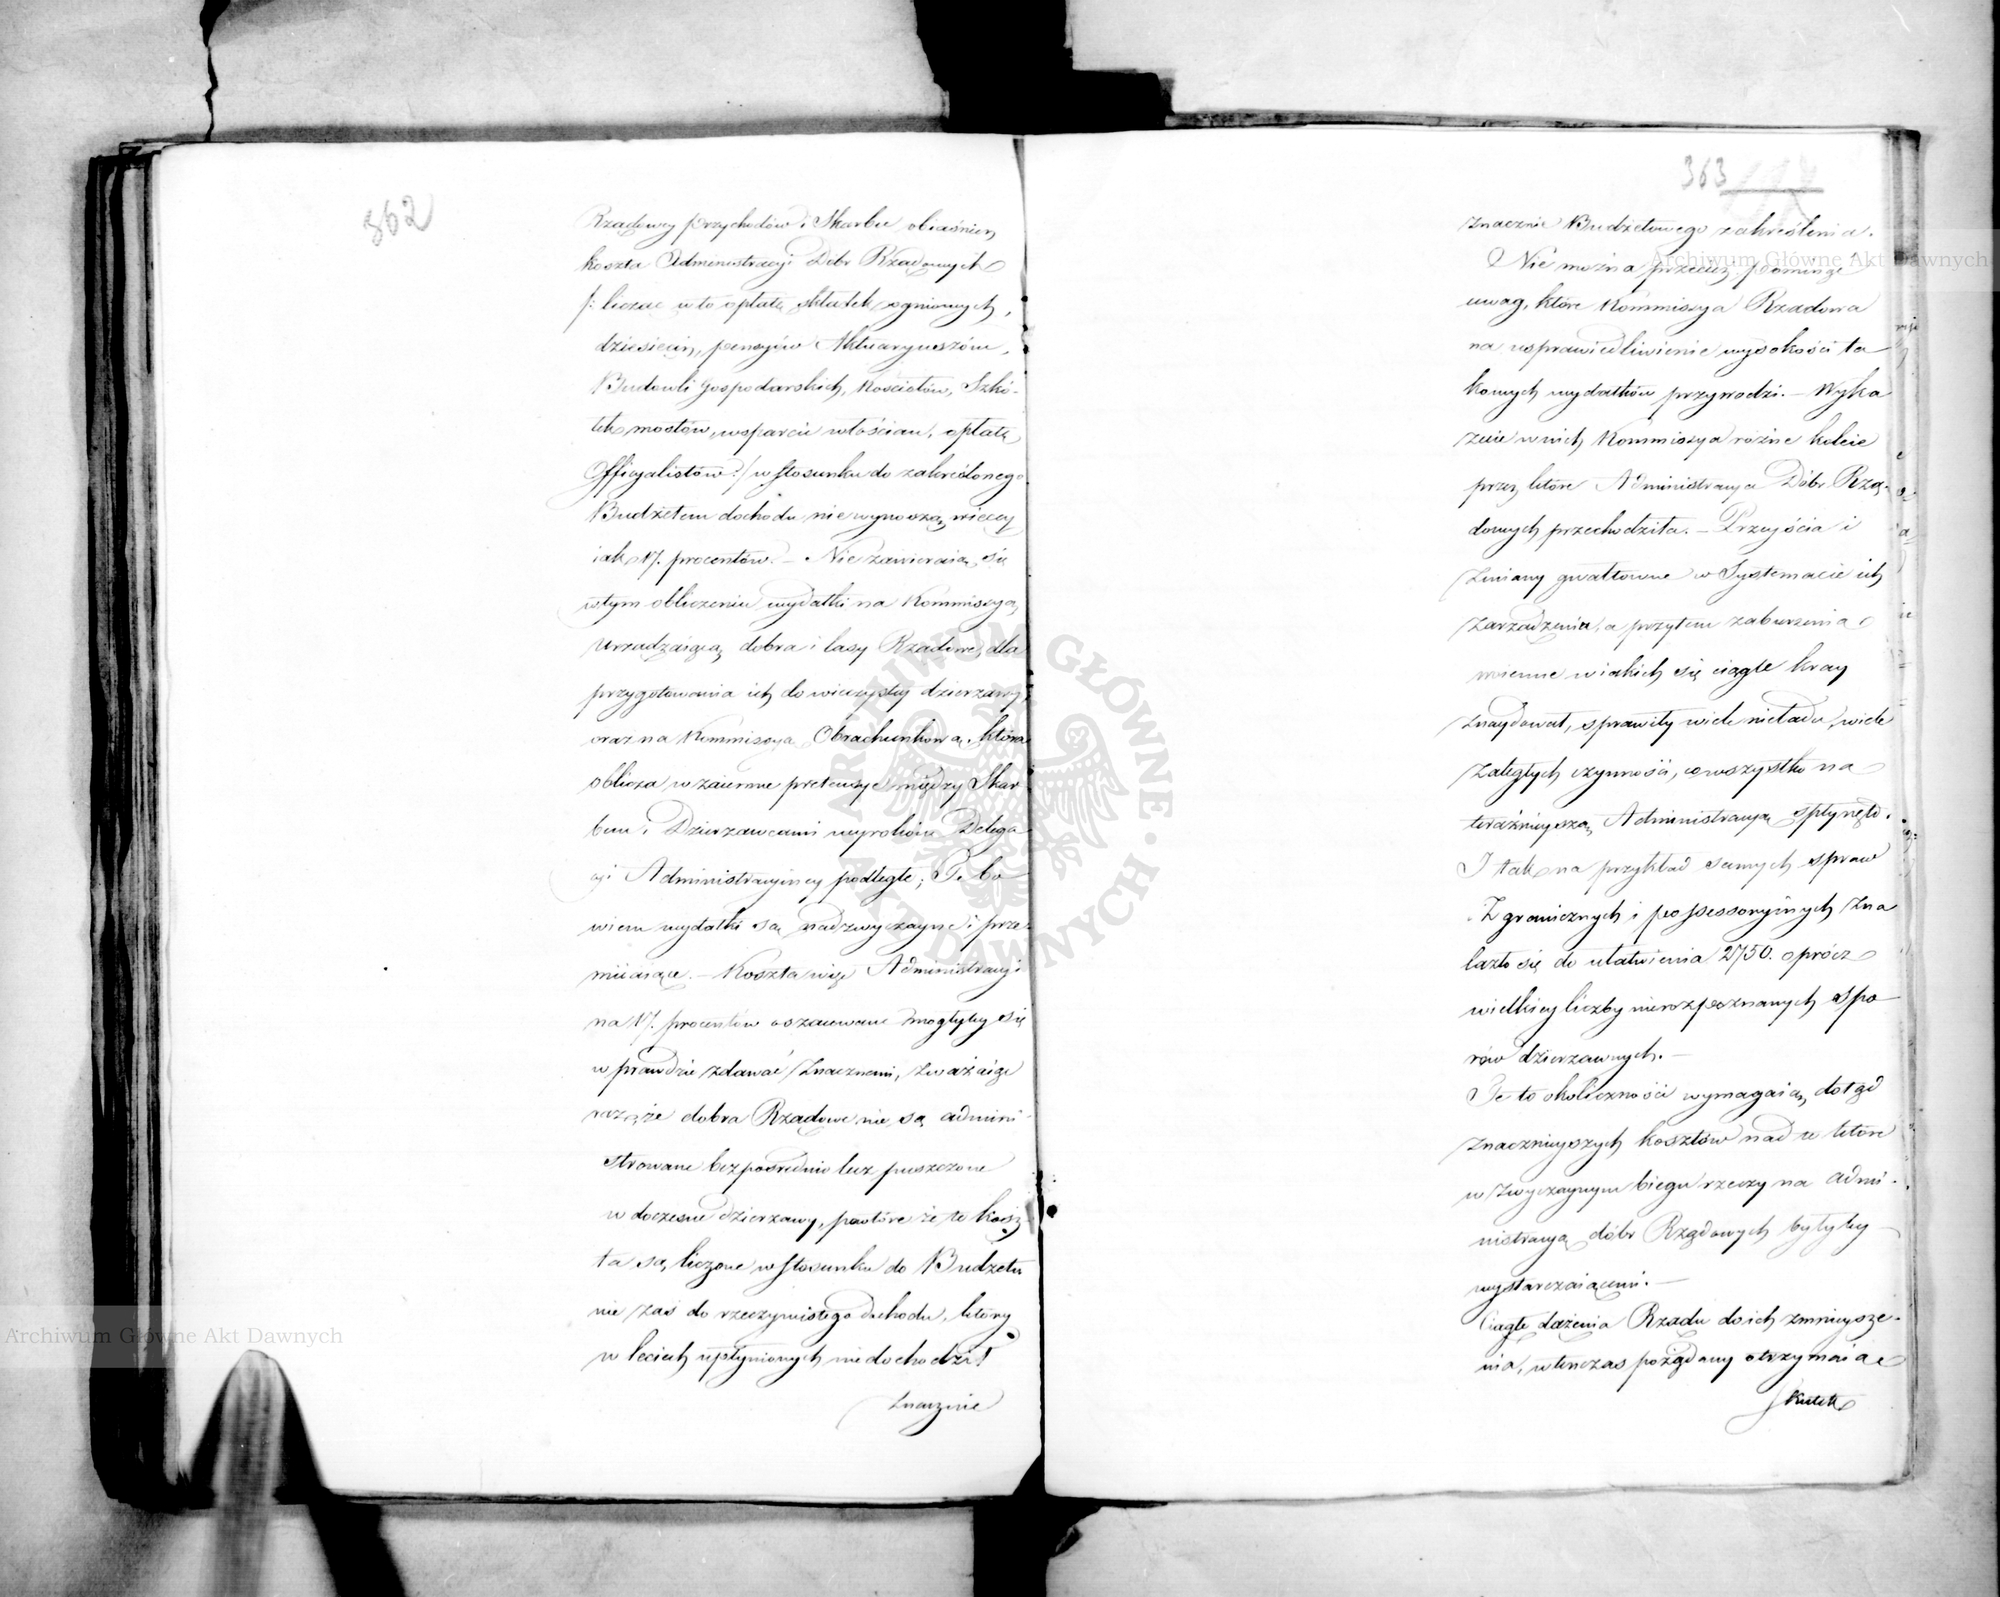 362
Rządowey przychodów i Skarbu obiaśnień
koszta Administracyi Dóbr Rządowych
/: licząc w to opłatę składek ogniowych,
dziesięcin, pensyów Aktuaryuszów,
Budowli gospodarskich, Kościołów, Szkó-
łek mostów, wsparcie włościan, opłatę
Officyalistów :/ w stosunku do zakreślonego
Budżetem dochodu nie wynoszą więcey
iak 17. procentów. – Nie zawieraią się
w tym obliczeniu wydatki na Kommissyą
Urządzaiącą dobra i lasy Rządowe, dla
przygotowania ich do wieczystey dzierzawy,
oraz na Kommissyą Obrachunkową, która
oblicza wzaiemne pretensye między Skar
bem i Dzierzawcami wyroków Delega
cyi Administracyiney podległe; Te bo
wiem wydatki są nadzwyczayne i prze-
miiaiące. – Koszta więc Administracyi
na 17. procentów oszacowane mogłyby się
wprawdzie zdawać znacznemi, zważaiąc
raz, że dobra Rządowe nie są admini-
strowane bezpośrednio lecz puszczone
w doczesne dzierzawy, powtóre że te kosz-
ta są liczone w stosunku do Budżetu
nie zaś do rzeczywistego dochodu, który
w leciech upłynionych nie dochodził
znacznie
363
znacznie Budżetowego zakreślenia.
Nie można przecież pominąć
uwag, które Kommissya Rządowa
na usprawiedliwienie wysokości ta
kowych wydatków przywodzi. – Wyka
zuie w nich Kommissya różne koleie
przez które Administracya Dóbr Rzą-
dowych przechodziła. – Przeyścia i
zmiany gwałtowne w Systemacie ich
zarządzenia, a przytem zaburzenia
woienne w iakich się ciągle kray
znaydował, sprawiły wiele nieładu, wiele
zaległych czynności, co wszystko na
teraźnieyszą Administracyą spłynęło.
I tak na przykład samych spraw
Zgranicznych i possessoryinych zna
lazło się do ułatwienia 2750. oprócz
wielkiey liczby nierozpoznanych spo
rów dzierzawnych. –
Te to okoliczności wymagaią dotąd
znacznieyszych kosztów nad te które
w zwyczaynym biegu rzeczy na admi-
nistracyą dóbr Rządowych byłyby
wystarczaiącemi. –
Ciągłe dążenia Rządu do ich zmnieysze-
nia, wtenczas pożądany otrzymaią
skutek
Archiwum Główne Akt Dawnych
Archiwum Główne Akt Dawnych
ARCHIWUM GŁÓWNE · AKT DAWNYCH ·